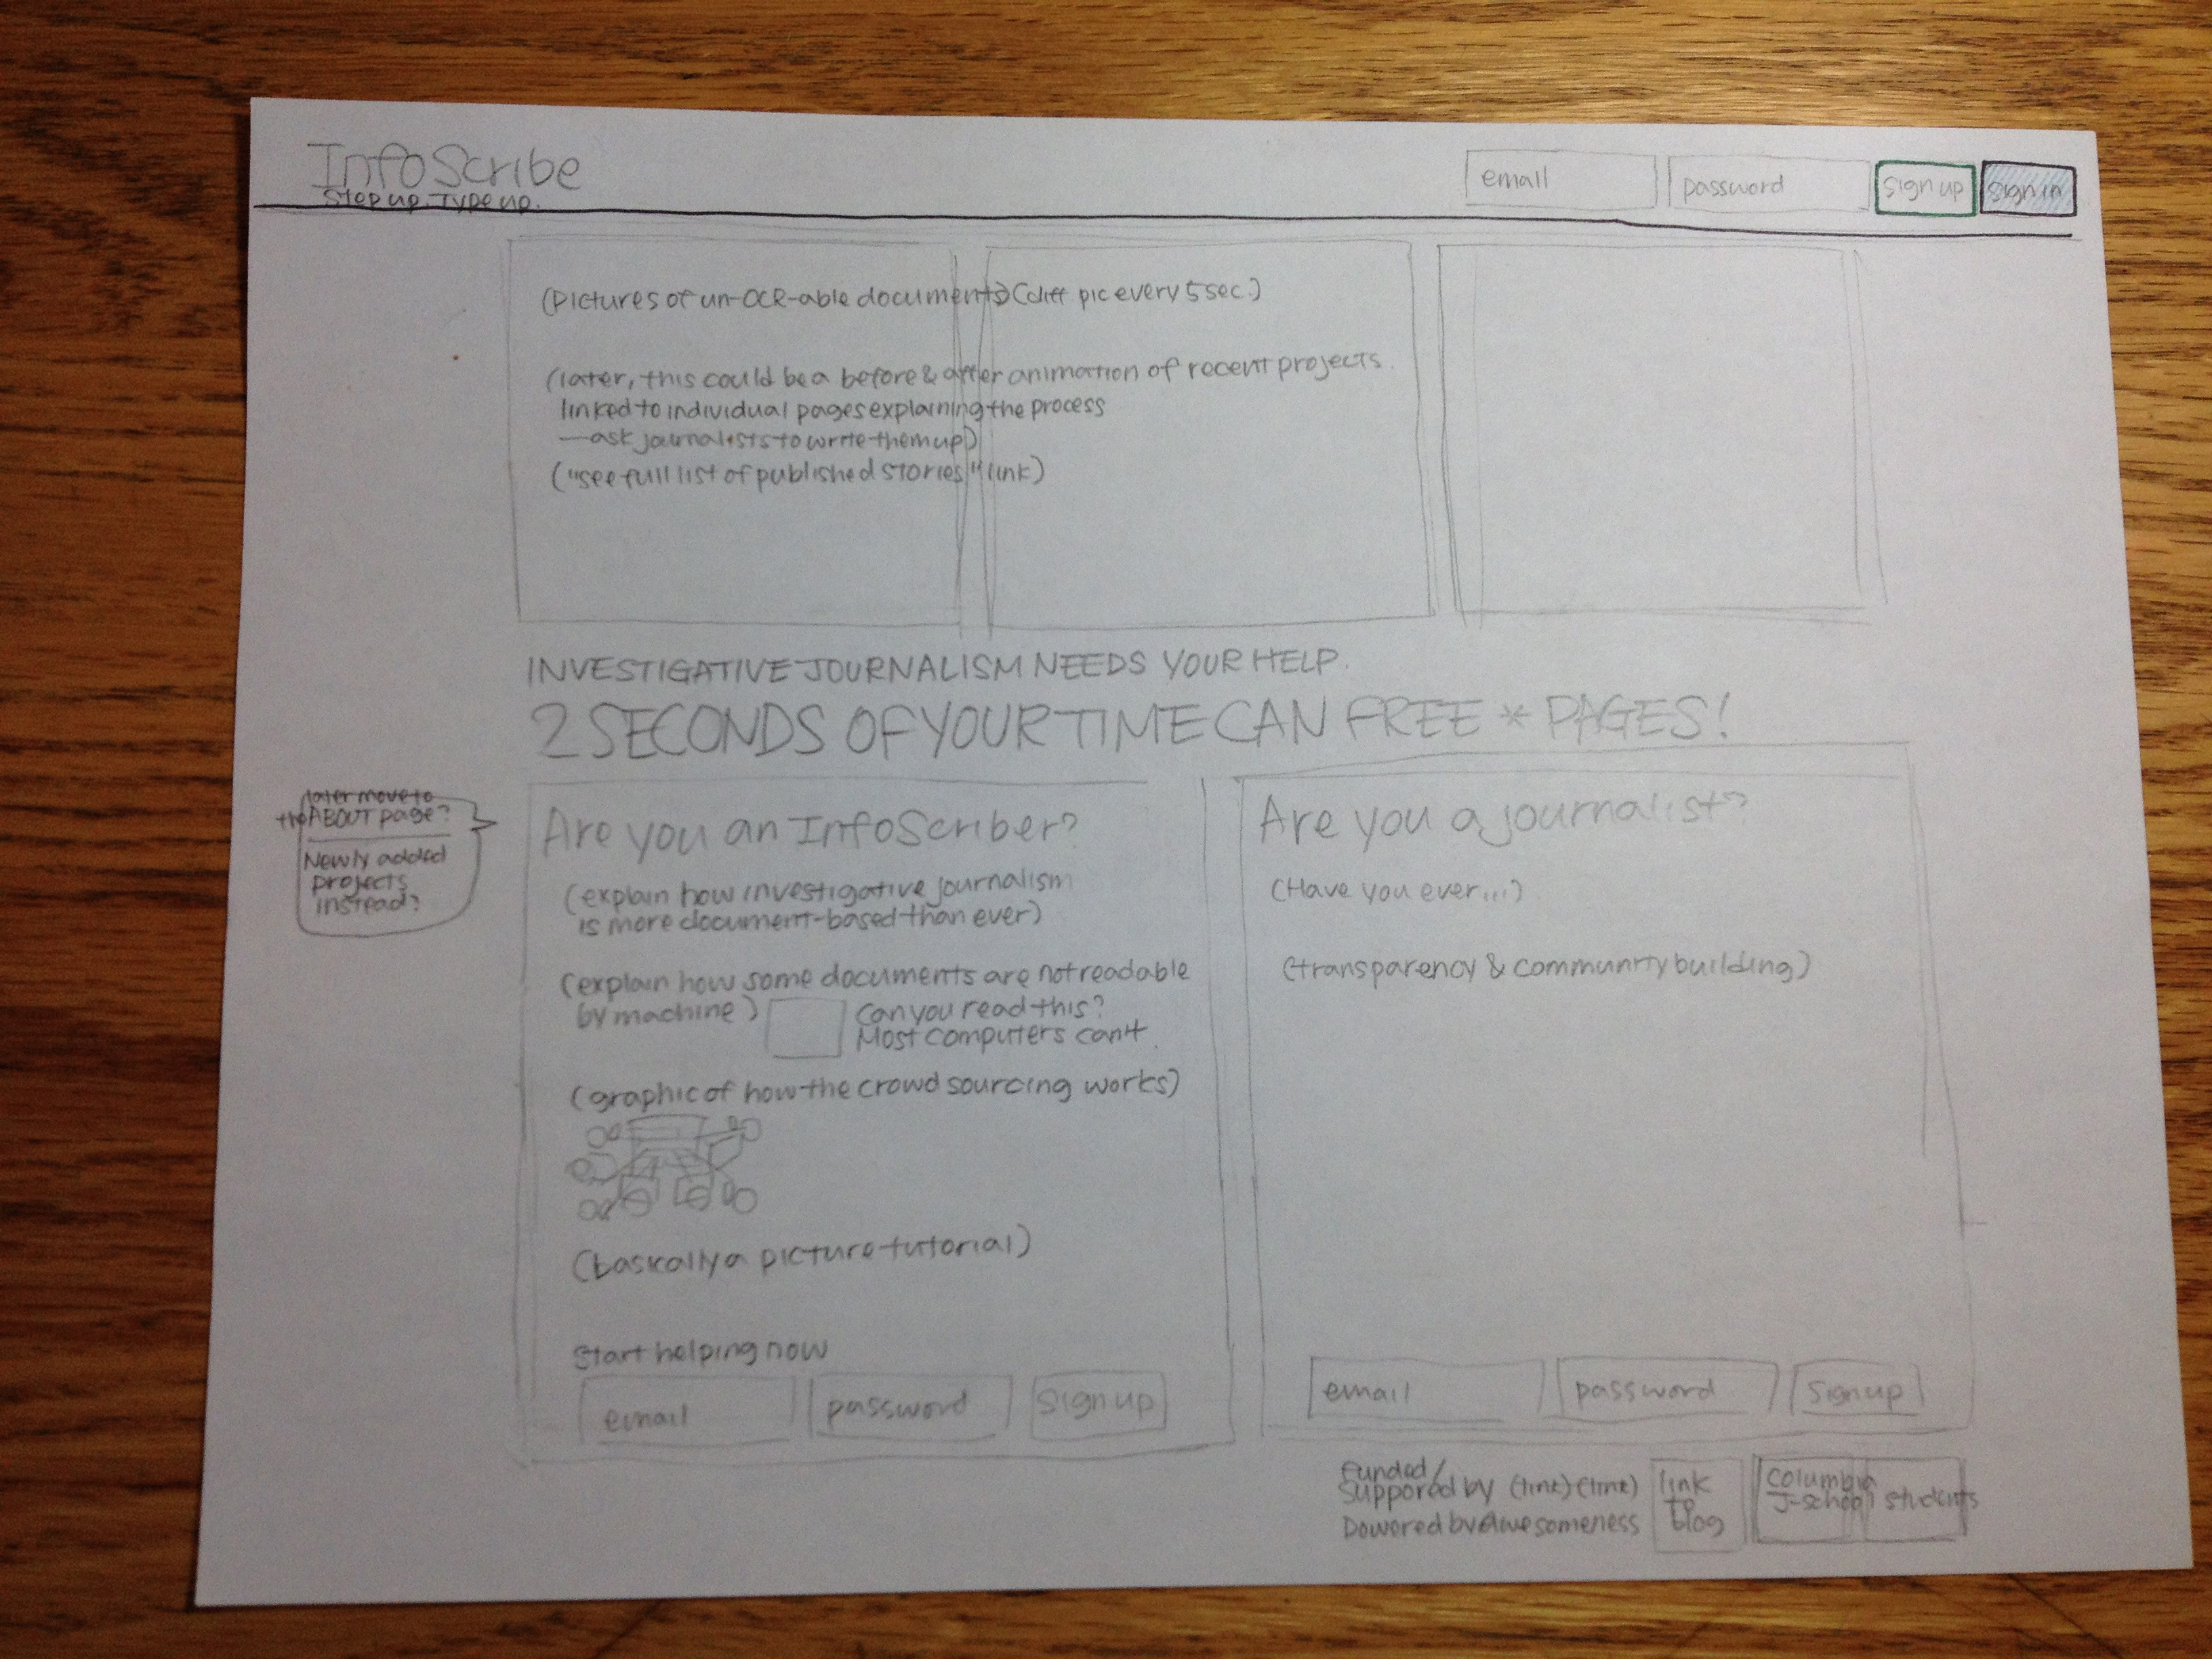 InfoScribe
Step up. Type up.
email
password
Sign up
Sign in
(Pictures of un-OCR-able documents) (diff pic every 5 sec.)
(later, this could be a before & after animation of recent projects.
linked to individual pages explaining the process
—ask journalists to write them up)
("see full list of published stories" link)
INVESTIGATIVE JOURNALISM NEEDS YOUR HELP.
2 SECONDS OF YOUR TIME CAN FREE * PAGES!
later move to
the ABOUT page?
Newly added
projects
instead?
Are you an InfoScriber?
(explain how investigative journalism
is more document-based than ever)
(explain how some documents are not readable
by machine)
Can you read this?
Most computers can't.
(graphic of how the crowd sourcing works)
(basically a picture tutorial)
Start helping now
email
password
Sign up
Are you a journalist?
(Have you ever...)
(transparency & community building)
email
password
Sign up
Funded/
Suppored by (link) (link)
Powered by Awesomeness
link
to
blog
Columbia
J-school
students